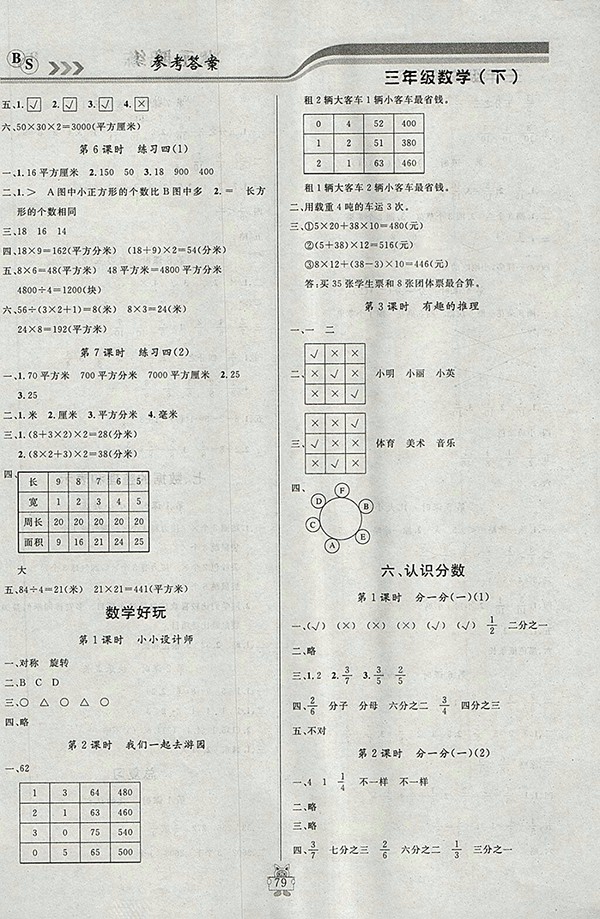 BS 参考答案
三年级数学(下)
五、1.√ 2.√ 3.√ 4.×
六、50×30×2=3000(平方厘米)
第6课时 练习四(1)
一、1.16平方厘米 2.150 50 3.18 900 400
二、1.> A图中小正方形的个数比B图中多 2.= 长方
形的个数相同
三、18 16 14
四、18×9=162(平方分米) (18+9)×2=54(分米)
五、8×6=48(平方米) 48平方米=4800平方分米
4800÷4=1200(块)
六、56÷(3×2+1)=8(米) 8×3=24(米)
24×8=192(平方米)
第7课时 练习四(2)
一、1.70平方米 700平方分米 7000平方厘米 2.25
3.25
二、1.米 2.厘米 3.平方分米 4.毫米
三、1.(8+3×2)×2=28(分米)
2.(8×2+3)×2=38(分米)
四、
长 9 8 7 6 5
宽 1 2 3 4 5
周长 20 20 20 20 20
面积 9 16 21 24 25
大
五、84÷4=21(米) 21×21=441(平方米)
数学好玩
第1课时 小小设计师
一、对称 旋转
二、B C D
三、○ △ ○ △ ○ △
四、略
第2课时 我们一起去游园
一、62
1 3 64 480
2 1 63 460
3 0 75 540
0 5 65 500
租2辆大客车1辆小客车最省钱。
0 4 52 400
1 2 51 380
2 1 63 460
租1辆大客车2辆小客车最省钱。
二、用载重4吨的车运3次。
三、①5×20+38×10=480(元)
②(5+38)×12=516(元)
③8×12+(38-3)×10=446(元)
答:买35张学生票和8张团体票最合算。
第3课时 有趣的推理
一、一 二
二、
√ × ×
× × √
× √ ×
小明 小丽 小英
三、
× × √
√ × ×
× √ ×
体育 美术 音乐
四、
F
D B
C E
A
六、认识分数
第1课时 分一分(一)(1)
一、(√) (×) (×) (√) (√) (√) 1/2 二分之一
二、略
三、1.2 2.3/7 3.3/5 2/5
四、2/6 分子 分母 六分之二 3/4 四分之三
五、不对
第2课时 分一分(一)(2)
一、4 1 1/4 不一样 不一样
二、略
三、略
四、3/7 七分之三 2/6 六分之二 1/3 三分之一
79